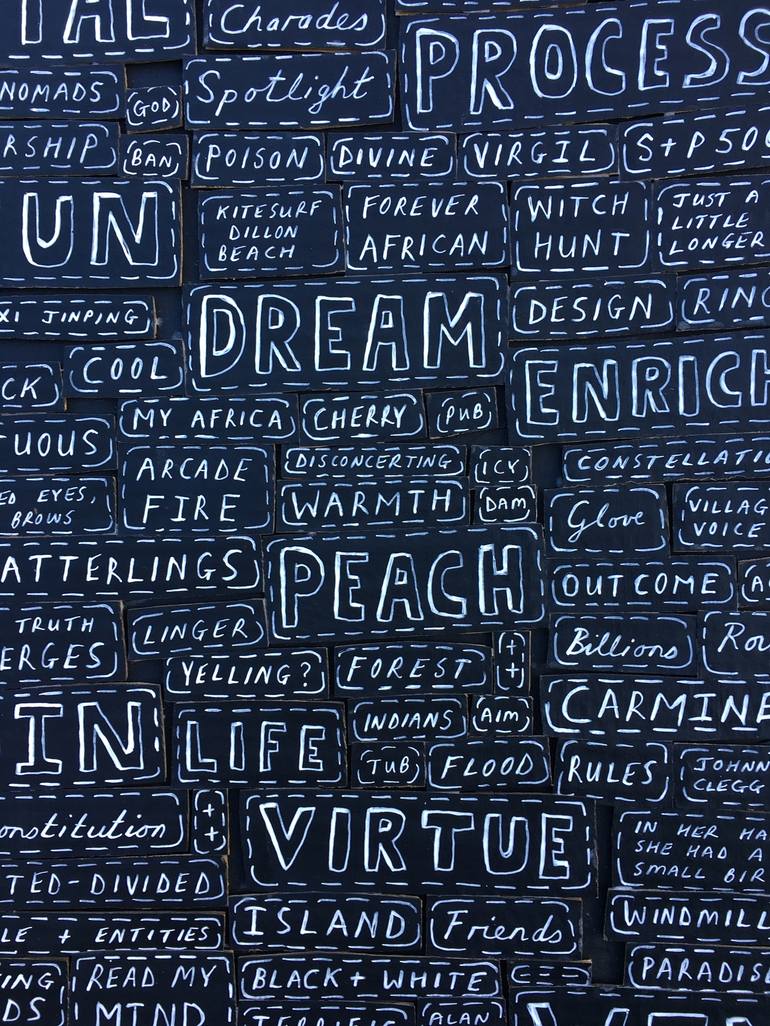 TAL
Charades
PROCESS
NOMADS
GOD
Spotlight
RSHIP
BAN
POISON
DIVINE
VIRGIL
S+P 500
UN
KITESURF
DILLON
BEACH
FOREVER
AFRICAN
WITCH
HUNT
JUST A
LITTLE
LONGER
XI JINPING
DREAM
DESIGN
RING
CK
COOL
ENRICH
MY AFRICA
CHERRY
PUB
UOUS
ARCADE
FIRE
DISCONCERTING
ICY
CONSTELLATIO
ED EYES,
BROWS
WARMTH
DAM
Glove
VILLAG
VOICE
ATTERLINGS
PEACH
OUTCOME
TRUTH
ERGES
LINGER
Billions
Rou
YELLING?
FOREST
++
IN
LIFE
INDIANS
AIM
CARMINE
TUB
FLOOD
RULES
JOHNN
CLEGG
onstitution
++
VIRTUE
IN HER HA
SHE HAD A
SMALL BIR
TED-DIVIDED
ISLAND
Friends
WINDMILL
LE + ENTITIES
ING
DS
READ MY
MIND
BLACK + WHITE
C==>
PARADISE
TERRIFIC
ALAN